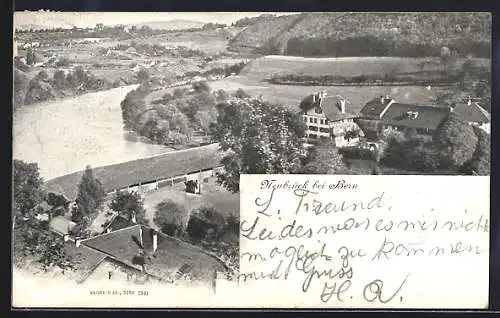 Neubrück bei Bern
L Freund.
Leider war es mir nicht
möglich zu kommen
Gruss
H. R.